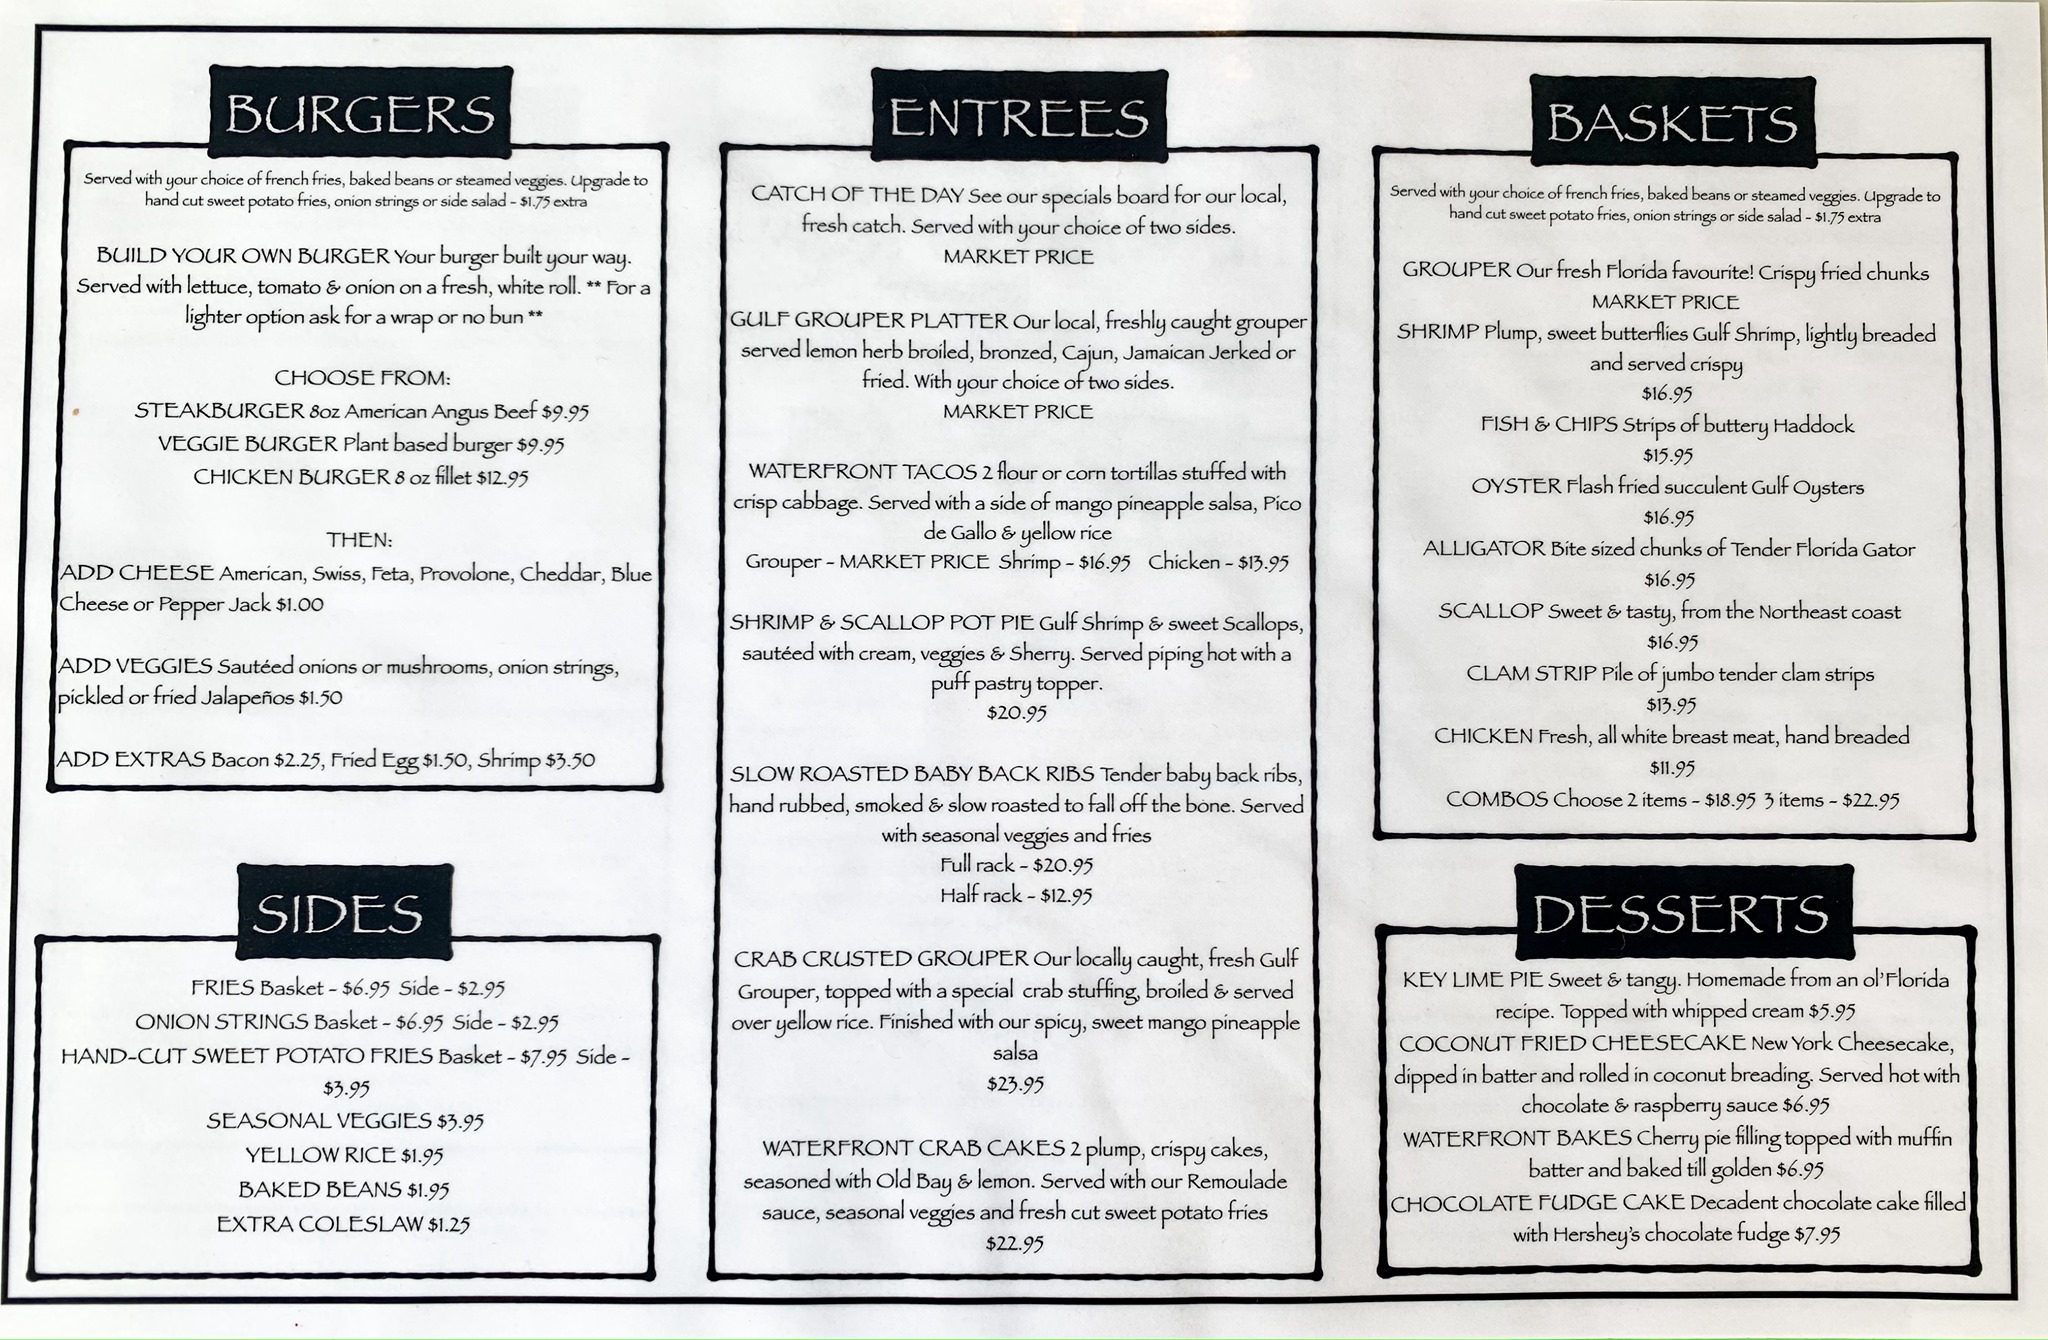 BURGERS
Served with your choice of french fries, baked beans or steamed veggies. Upgrade to
hand cut sweet potato fries, onion strings or side salad - $1.75 extra
BUILD YOUR OWN BURGER Your burger built your way.
Served with lettuce, tomato & onion on a fresh, white roll. ** For a
lighter option ask for a wrap or no bun **
CHOOSE FROM:
STEAKBURGER 8oz American Angus Beef $9.95
VEGGIE BURGER Plant based burger $9.95
CHICKEN BURGER 8 oz fillet $12.95
THEN:
ADD CHEESE American, Swiss, Feta, Provolone, Cheddar, Blue
Cheese or Pepper Jack $1.00
ADD VEGGIES Sautéed onions or mushrooms, onion strings,
pickled or fried Jalapeños $1.50
ADD EXTRAS Bacon $2.25, Fried Egg $1.50, Shrimp $3.50
SIDES
FRIES Basket - $6.95 Side - $2.95
ONION STRINGS Basket - $6.95 Side - $2.95
HAND-CUT SWEET POTATO FRIES Basket - $7.95 Side -
$3.95
SEASONAL VEGGIES $3.95
YELLOW RICE $1.95
BAKED BEANS $1.95
EXTRA COLESLAW $1.25
ENTREES
CATCH OF THE DAY See our specials board for our local,
fresh catch. Served with your choice of two sides.
MARKET PRICE
GULF GROUPER PLATTER Our local, freshly caught grouper
served lemon herb broiled, bronzed, Cajun, Jamaican Jerked or
fried. With your choice of two sides.
MARKET PRICE
WATERFRONT TACOS 2 flour or corn tortillas stuffed with
crisp cabbage. Served with a side of mango pineapple salsa, Pico
de Gallo & yellow rice
Grouper - MARKET PRICE Shrimp - $16.95 Chicken - $13.95
SHRIMP & SCALLOP POT PIE Gulf Shrimp & sweet Scallops,
sautéed with cream, veggies & Sherry. Served piping hot with a
puff pastry topper.
$20.95
SLOW ROASTED BABY BACK RIBS Tender baby back ribs,
hand rubbed, smoked & slow roasted to fall off the bone. Served
with seasonal veggies and fries
Full rack - $20.95
Half rack - $12.95
CRAB CRUSTED GROUPER Our locally caught, fresh Gulf
Grouper, topped with a special crab stuffing, broiled & served
over yellow rice. Finished with our spicy, sweet mango pineapple
salsa
$23.95
WATERFRONT CRAB CAKES 2 plump, crispy cakes,
seasoned with Old Bay & lemon. Served with our Remoulade
sauce, seasonal veggies and fresh cut sweet potato fries
$22.95
BASKETS
Served with your choice of french fries, baked beans or steamed veggies. Upgrade to
hand cut sweet potato fries, onion strings or side salad - $1.75 extra
GROUPER Our fresh Florida favourite! Crispy fried chunks
MARKET PRICE
SHRIMP Plump, sweet butterflies Gulf Shrimp, lightly breaded
and served crispy
$16.95
FISH & CHIPS Strips of buttery Haddock
$15.95
OYSTER Flash fried succulent Gulf Oysters
$16.95
ALLIGATOR Bite sized chunks of Tender Florida Gator
$16.95
SCALLOP Sweet & tasty, from the Northeast coast
$16.95
CLAM STRIP Pile of jumbo tender clam strips
$13.95
CHICKEN Fresh, all white breast meat, hand breaded
$11.95
COMBOS Choose 2 items - $18.95 3 items - $22.95
DESSERTS
KEY LIME PIE Sweet & tangy. Homemade from an ol'Florida
recipe. Topped with whipped cream $5.95
COCONUT FRIED CHEESECAKE New York Cheesecake,
dipped in batter and rolled in coconut breading. Served hot with
chocolate & raspberry sauce $6.95
WATERFRONT BAKES Cherry pie filling topped with muffin
batter and baked till golden $6.95
CHOCOLATE FUDGE CAKE Decadent chocolate cake filled
with Hershey's chocolate fudge $7.95